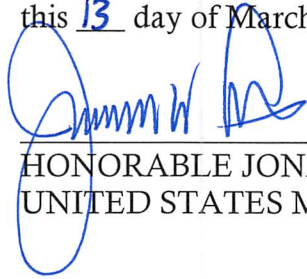 this 13 day of March
HONORABLE JON
UNITED STATES M